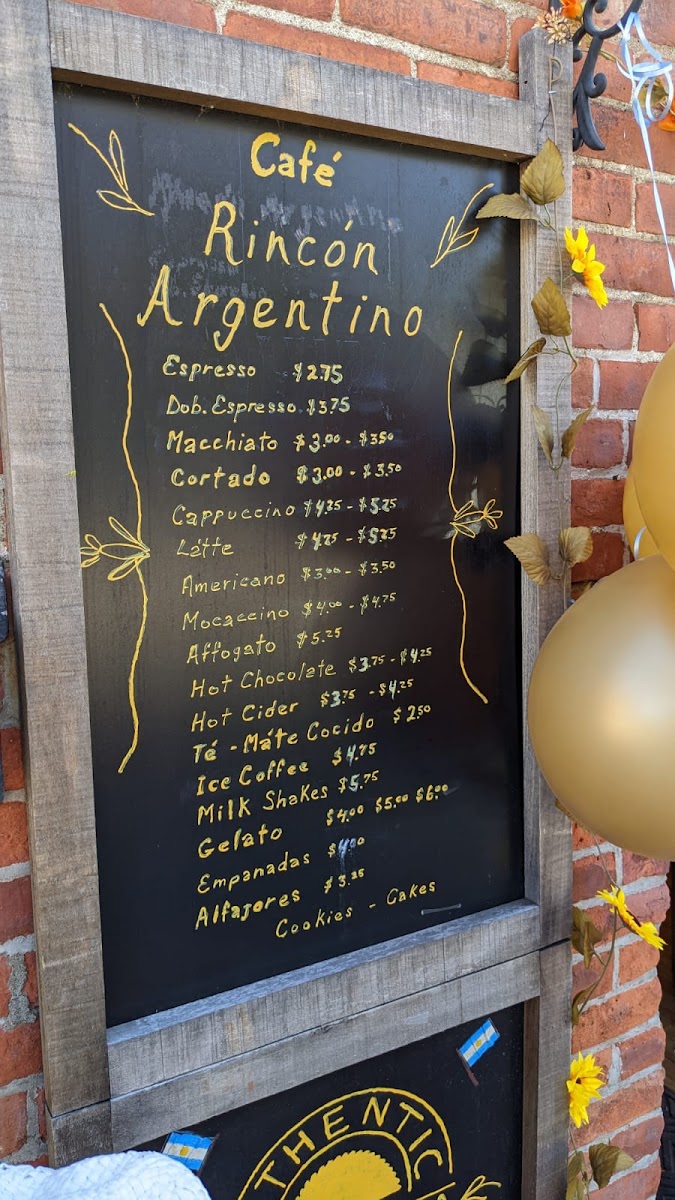 Café
Rincón
Argentino
Espresso $2.75
Dob. Espresso $3.75
Macchiato $3.00 - $3.50
Cortado $3.00 - $3.50
Cappuccino $4.25 - $5.25
Látte $4.25 - $5.25
Americano $3.00 - $3.50
Mocaccino $4.00 - $4.75
Affogato $5.25
Hot Chocolate $3.75 - $4.25
Hot Cider $3.75 - $4.25
Té - Máte Cocido $2.50
Ice Coffee $4.75
Milk Shakes $5.75
Gelato $4.00 $5.00 $6.00
Empanadas $4.00
Alfajores $3.25
Cookies - Cakes
THENTIC